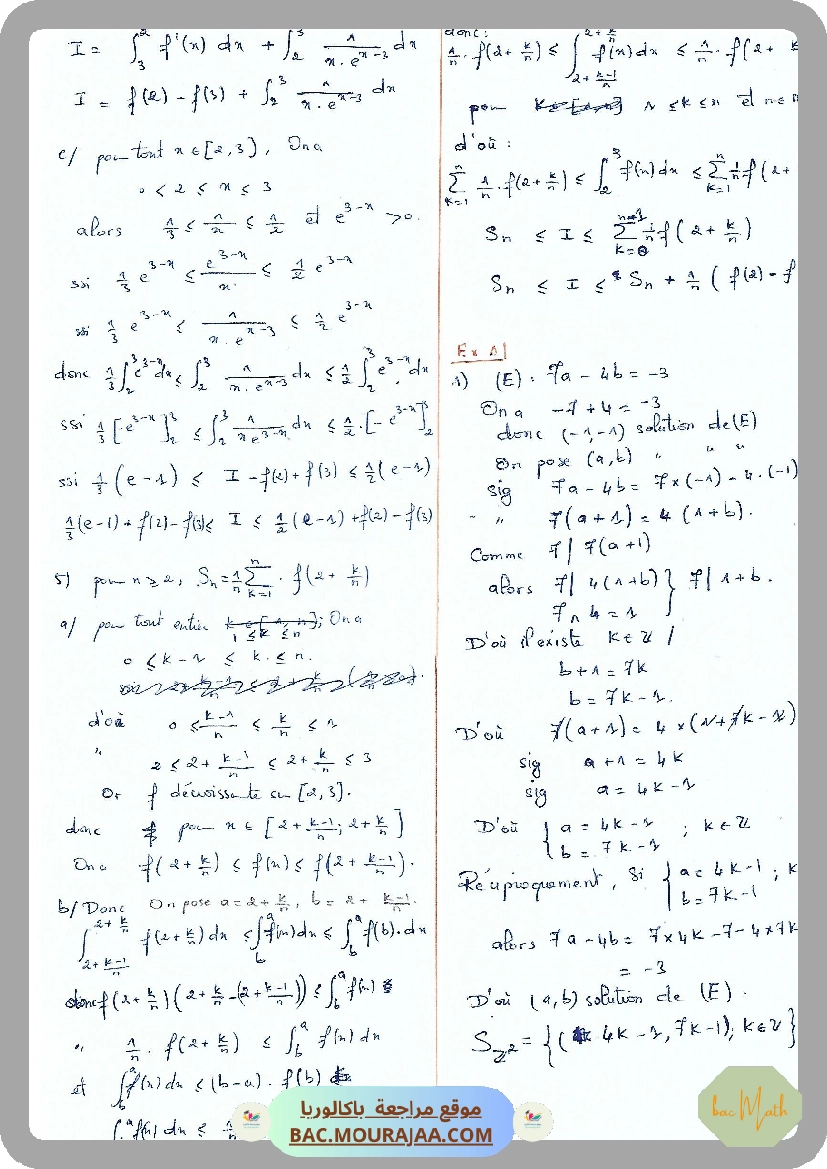 I = ∫_3^2 f'(x) dx + ∫_2^3 1/(x·e^{x-3}) dx
I = f(2) - f(3) + ∫_2^3 1/(x·e^{x-3}) dx
c/ pour tout x ∈ [2,3], On a
0 < 2 ≤ x ≤ 3
alors 1/3 ≤ 1/x ≤ 1/2 et e^{3-x} > 0.
ssi 1/3 e^{3-x} ≤ e^{3-x}/x ≤ 1/2 e^{3-x}
ssi 1/3 e^{3-x} ≤ 1/(x·e^{x-3}) ≤ 1/2 e^{3-x}
donc 1/3 ∫_2^3 e^{3-x} dx ≤ ∫_2^3 1/(x·e^{x-3}) dx ≤ 1/2 ∫_2^3 e^{3-x} dx
ssi 1/3 [-e^{3-x}]_2^3 ≤ ∫_2^3 1/(x e^{3-x}) dx ≤ 1/2·[-e^{3-x}]_2^3
ssi 1/3 (e-1) ≤ I - f(2) + f(3) ≤ 1/2 (e-1)
1/3 (e-1) + f(2) - f(3) ≤ I ≤ 1/2 (e-1) + f(2) - f(3)
5) pour n ≥ 2, Sn = 1/n ∑_{k=1}^n · f(2 + k/n)
a/ pour tout entier 1 ≤ k ≤ n ; On a
0 ≤ k-1 ≤ k ≤ n.
d'où 0 ≤ (k-1)/n ≤ k/n ≤ 1
" 2 ≤ 2 + (k-1)/n ≤ 2 + k/n ≤ 3
Or f décroissante sur [2,3].
donc pour x ∈ [2 + (k-1)/n ; 2 + k/n]
On a f(2 + k/n) ≤ f(x) ≤ f(2 + (k-1)/n).
b/ Donc On pose a = 2 + k/n, b = 2 + (k-1)/n.
∫_{2+(k-1)/n}^{2+k/n} f(2 + k/n) dx ≤ ∫_b^a f(x) dx ≤ ∫_b^a f(b)·dx
donc f(2 + k/n) (2 + k/n - (2 + (k-1)/n)) ≤ ∫_b^a f(x)
" 1/n · f(2 + k/n) ≤ ∫_b^a f(x) dx
et ∫_b^a f(x) dx ≤ (b-a) · f(b)
∫^a f(x) dx ≤
donc:
1/n · f(2 + k/n) ≤ ∫_{2+(k-1)/n}^{2+k/n} f(x) dx ≤ 1/n · f(2 +
pour 1 ≤ k ≤ n et n ∈
d'où :
∑_{k=1}^n 1/n · f(2 + k/n) ≤ ∫_2^3 f(x) dx ≤ ∑_{k=1}^n 1/n f(2 +
Sn ≤ I ≤ ∑_{k=0}^{n-1} 1/n f(2 + k/n)
Sn ≤ I ≤ Sn + 1/n (f(2) - f
Ex 1
1) (E) : 7a - 4b = -3
On a -7 + 4 = -3
donc (-1,-1) solution de (E)
On pose (a,b) " " "
sig 7a - 4b = 7×(-1) - 4·(-1)
" 7(a+1) = 4(1+b).
Comme 7 | 7(a+1)
alors 7 | 4(1+b) } 7 | 1+b.
7 ∧ 4 = 1
D'où il existe k ∈ Z /
b+1 = 7k
b = 7k - 1.
D'où 7(a+1) = 4 × (1 + 7k - 1)
sig a+1 = 4k
sig a = 4k - 1
D'où { a = 4k - 1 ; k ∈ Z
b = 7k - 1
Réciproquement, Si { a = 4k - 1 ; k
b = 7k - 1
alors 7a - 4b = 7×4k - 7 - 4×7k
= -3
D'où (a,b) solution de (E).
S_{Z²} = {(4k - 1, 7k - 1); k ∈ Z}
موقع مراجعة باكالوريا
BAC.MOURAJAA.COM
bac Math